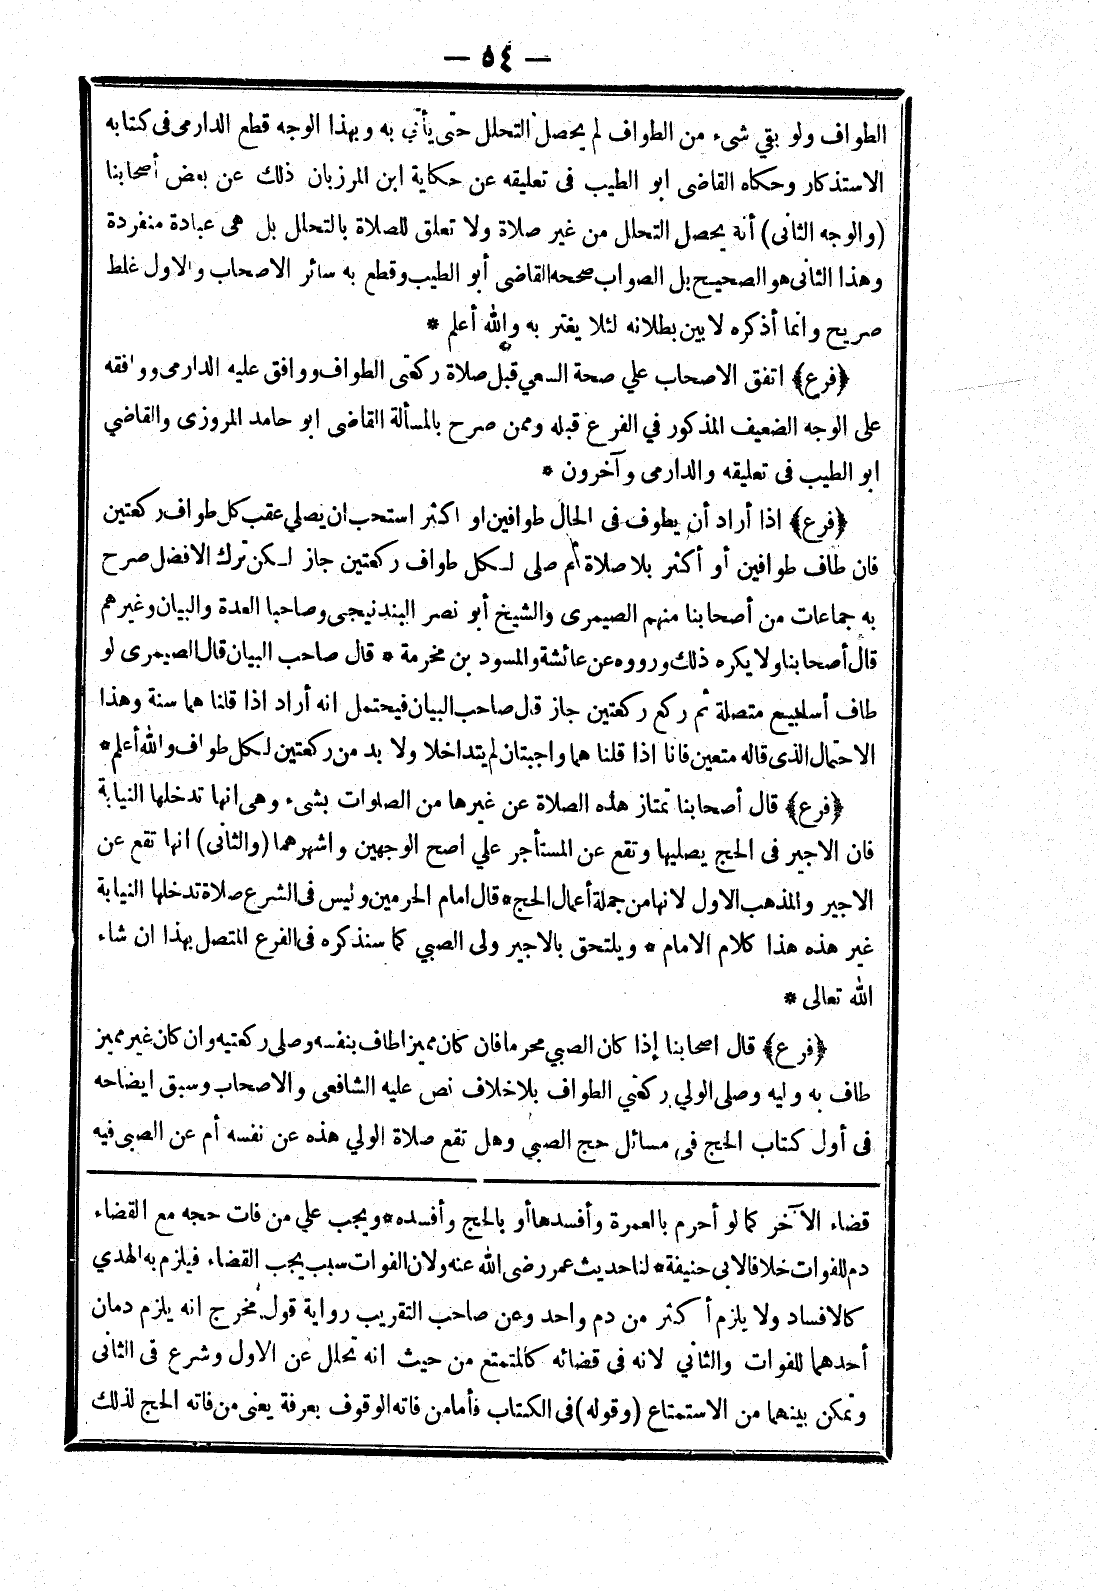 — ٥٤ —
الطواف ولو بقي شىء من الطواف لم يحصل التحلل حتى يأتي به وبهذا الوجه قطع الدارمى فى كتابه
الاستذكار وحكاه القاضى ابو الطيب فى تعليقه عن حكاية ابن المرزبان ذلك عن بعض أصحابنا
(والوجه الثانى) أنه يحصل التحلل من غير صلاة ولا تعلق للصلاة بالتحلل بل هى عبادة منفردة
وهذا الثانى هو الصحيح بل الصواب صححه القاضى أبو الطيب وقطع به سائر الاصحاب والاول غلط
صريح وانما أذكره لابين بطلانه لئلا يغتر به والله أعلم *
﴿فرع﴾ اتفق الاصحاب علي صحة السعي قبل صلاة ركعتى الطواف ووافق عليه الدارمى ووافقه
على الوجه الضعيف المذكور في الفرع قبله وممن صرح بالمسألة القاضى ابو حامد المروزى والقاضي
ابو الطيب فى تعليقه والدارمى وآخرون *
﴿فرع﴾ اذا أراد أن يطوف فى الحال طوافين او اكثر استحب ان يصلي عقب كل طواف ركعتين
فان طاف طوافين أو أكثر بلا صلاة ثم صلى لكل طواف ركعتين جاز لكن ترك الافضل صرح
به جماعات من أصحابنا منهم الصيمرى والشيخ أبو نصر البندنيجى وصاحبا العدة والبيان وغيرهم
قال أصحابنا ولا يكره ذلك ورووه عن عائشة والمسود بن مخرمة * قال صاحب البيان قال الصيمرى لو
طاف أسابيع متصلة ثم ركع ركعتين جاز قال صاحب البيان فيحتمل انه أراد اذا قلنا هما سنة وهذا
الاحتمال الذى قاله متعين فانا اذا قلنا هما واجبتان لم يتداخلا ولا بد من ركعتين لكل طواف والله أعلم *
﴿فرع﴾ قال أصحابنا تمتاز هذه الصلاة عن غيرها من الصلوات بشىء وهى انها تدخلها النيابة
فان الاجير فى الحج يصليها وتقع عن المستأجر علي اصح الوجهين واشهرهما (والثانى) انها تقع عن
الاجير والمذهب الاول لانها من جملة أعمال الحج * قال امام الحرمين وليس فى الشرع صلاة تدخلها النيابة
غير هذه هذا كلام الامام * ويلتحق بالاجير ولى الصبي كما سنذكره فى الفرع المتصل بهذا ان شاء
الله تعالى *
﴿فرع﴾ قال اصحابنا إذا كان الصبي محرما فان كان مميزا طاف بنفسه وصلى ركعتيه وان كان غير مميز
طاف به وليه وصلى الولي ركعتي الطواف بلا خلاف نص عليه الشافعى والاصحاب وسبق ايضاحه
فى أول كتاب الحج فى مسائل حج الصبي وهل تقع صلاة الولي هذه عن نفسه أم عن الصبى فيه
قضاء الآخر كما لو أحرم بالعمرة وأفسدها أو بالحج وأفسده * ويجب علي من فات حجه مع القضاء
دم للفوات خلافا لابى حنيفة * لنا حديث عمر رضى الله عنه ولان الفوات سبب يجب القضاء فيلزم به الهدي
كالافساد ولا يلزم أكثر من دم واحد وعن صاحب التقريب رواية قول مخرج انه يلزم دمان
أحدهما للفوات والثاني لانه فى قضائه كالمتمتع من حيث انه تحلل عن الاول وشرع فى الثانى
وتمكن بينهما من الاستمتاع (وقوله) فى الكتاب فأما من فاته الوقوف بعرفة يعنى من فاته الحج لذلك